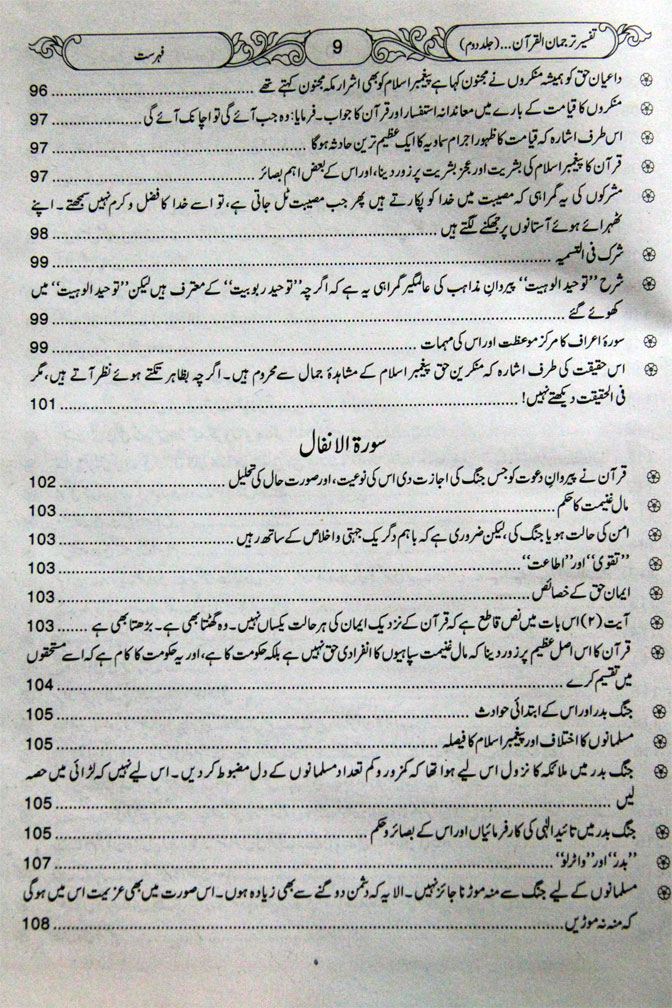 تفسیر ترجمان القرآن... (جلد دوم) 9 فہرست
داعیان حق کو ہمیشہ منکروں نے مجنون کہا ہے پیغمبر اسلام کو بھی اشرار مکہ مجنون کہتے تھے ........ 96
منکروں کا قیامت کے بارے میں معاندانہ استفسار اور قرآن کا جواب۔ فرمایا: وہ جب آئے گی تو اچانک آئے گی ........ 97
اس طرف اشارہ کہ قیامت کا ظہور اجرام سماویہ کا ایک عظیم ترین حادثہ ہوگا ........ 97
قرآن کا پیغمبر اسلام کی بشریت اور عجز بشریت پر زور دینا، اور اس کے بعض اہم بصائر ........ 97
مشرکوں کی یہ گمراہی کہ مصیبت میں خدا کو پکارتے ہیں پھر جب مصیبت ٹل جاتی ہے، تو اسے خدا کا فضل و کرم نہیں سمجھتے۔ اپنے
ٹھہرائے ہوئے آستانوں پر جھکنے لگتے ہیں ........ 98
شرک فی التسمیہ ........ 99
شرح ”توحید الوہیت“ پیروان مذاہب کی عالمگیر گمراہی یہ ہے کہ اگرچہ ”توحید ربوبیت“ کے معترف ہیں لیکن ”توحید الوہیت“ میں
کھوئے گئے ........ 99
سورۂ اعراف کا مرکز موعظت اور اس کی مہمات ........ 99
اس حقیقت کی طرف اشارہ کہ منکرین حق پیغمبر اسلام کے مشاہدۂ جمال سے محروم ہیں۔ اگرچہ بظاہر تکتے ہوئے نظر آتے ہیں، مگر
فی الحقیقت دیکھتے نہیں! ........ 101
سورۃ الانفال
قرآن نے پیروانِ دعوت کو جس جنگ کی اجازت دی اس کی نوعیت، اور صورت حال کی تحلیل ........ 102
مال غنیمت کا حکم ........ 103
امن کی حالت ہو یا جنگ کی، لیکن ضروری ہے کہ باہم دگر یک جہتی و اخلاص کے ساتھ رہیں ........ 103
”تقویٰ“ اور ”اطاعت“ ........ 103
ایمان حق کے خصائص ........ 103
آیت (۲) اس بات میں نص قاطع ہے کہ قرآن کے نزدیک ایمان کی ہر حالت یکساں نہیں۔ وہ گھٹتا بھی ہے۔ بڑھتا بھی ہے ....... 103
قرآن کا اس اصل عظیم پر زور دینا کہ مال غنیمت سپاہیوں کا انفرادی حق نہیں ہے بلکہ حکومت کا ہے، اور یہ حکومت کا کام ہے کہ اسے مستحقوں
میں تقسیم کرے ........ 104
جنگ بدر اور اس کے ابتدائی حوادث ........ 105
مسلمانوں کا اختلاف اور پیغمبر اسلام کا فیصلہ ........ 105
جنگ بدر میں ملائکہ کا نزول اس لیے ہوا تھا کہ کمزور و کم تعداد مسلمانوں کے دل مضبوط کر دیں۔ اس لیے نہیں کہ لڑائی میں حصہ
لیں ........ 105
جنگ بدر میں تائید الٰہی کی کارفرمائیاں اور اس کے بصائر و حکم ........ 105
”بدر“ اور ”واٹرلو“ ........ 107
مسلمانوں کے لیے جنگ سے منہ موڑنا جائز نہیں۔ الا یہ کہ دشمن دو گنے سے بھی زیادہ ہوں۔ اس صورت میں بھی عزیمت اس میں ہوگی
کہ منہ نہ موڑیں ........ 108